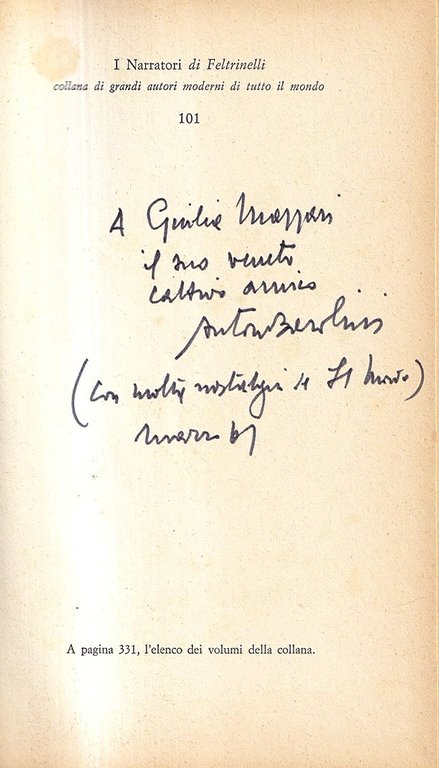 I Narratori di Feltrinelli
collana di grandi autori moderni di tutto il mondo
101
A Giulia Massari
il suo veneto
cattivo amico
Antonio Barolini
(con molta nostalgia de Il Mondo)
marzo 61
A pagina 331, l'elenco dei volumi della collana.